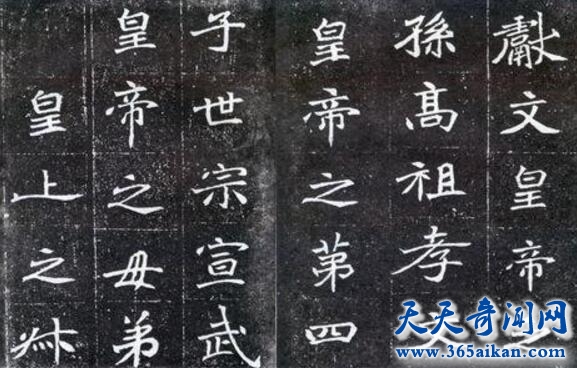 獻文皇帝之
孫髙祖孝文
皇帝之苐四
子世宗宣武
皇帝之母弟
皇上之尗
天天奇闻网
www.365aikan.com